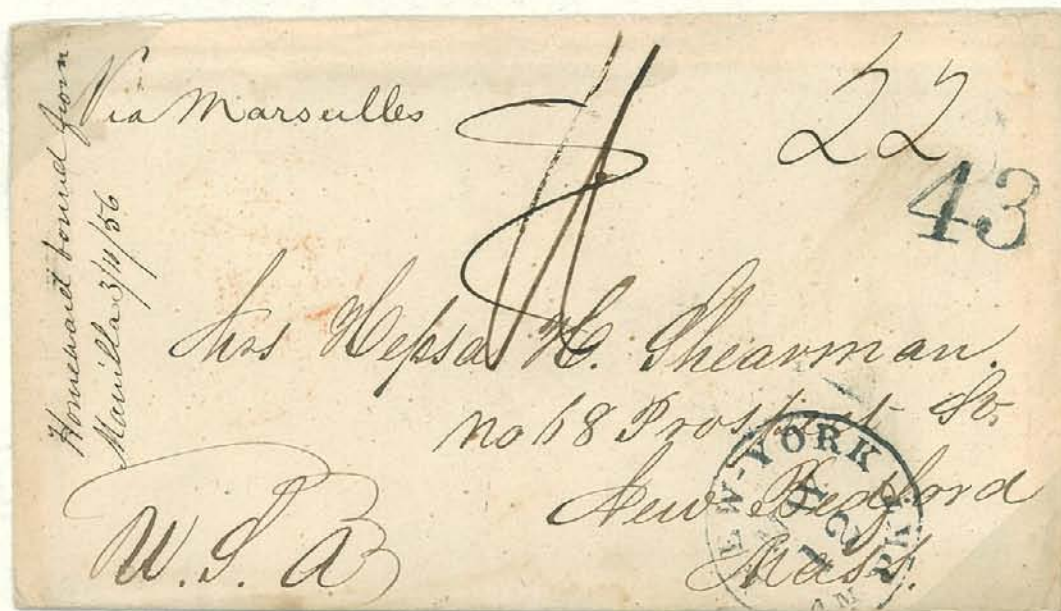 Homeward bound from
Manilla 3/11/56
Via Marseilles
22
43
Mrs Hepsa H. Shearman.
No 68 Prospect St.
New Bedford
Mass.
U.S.A
NEW-YORK AM. PKT.
MAY
12